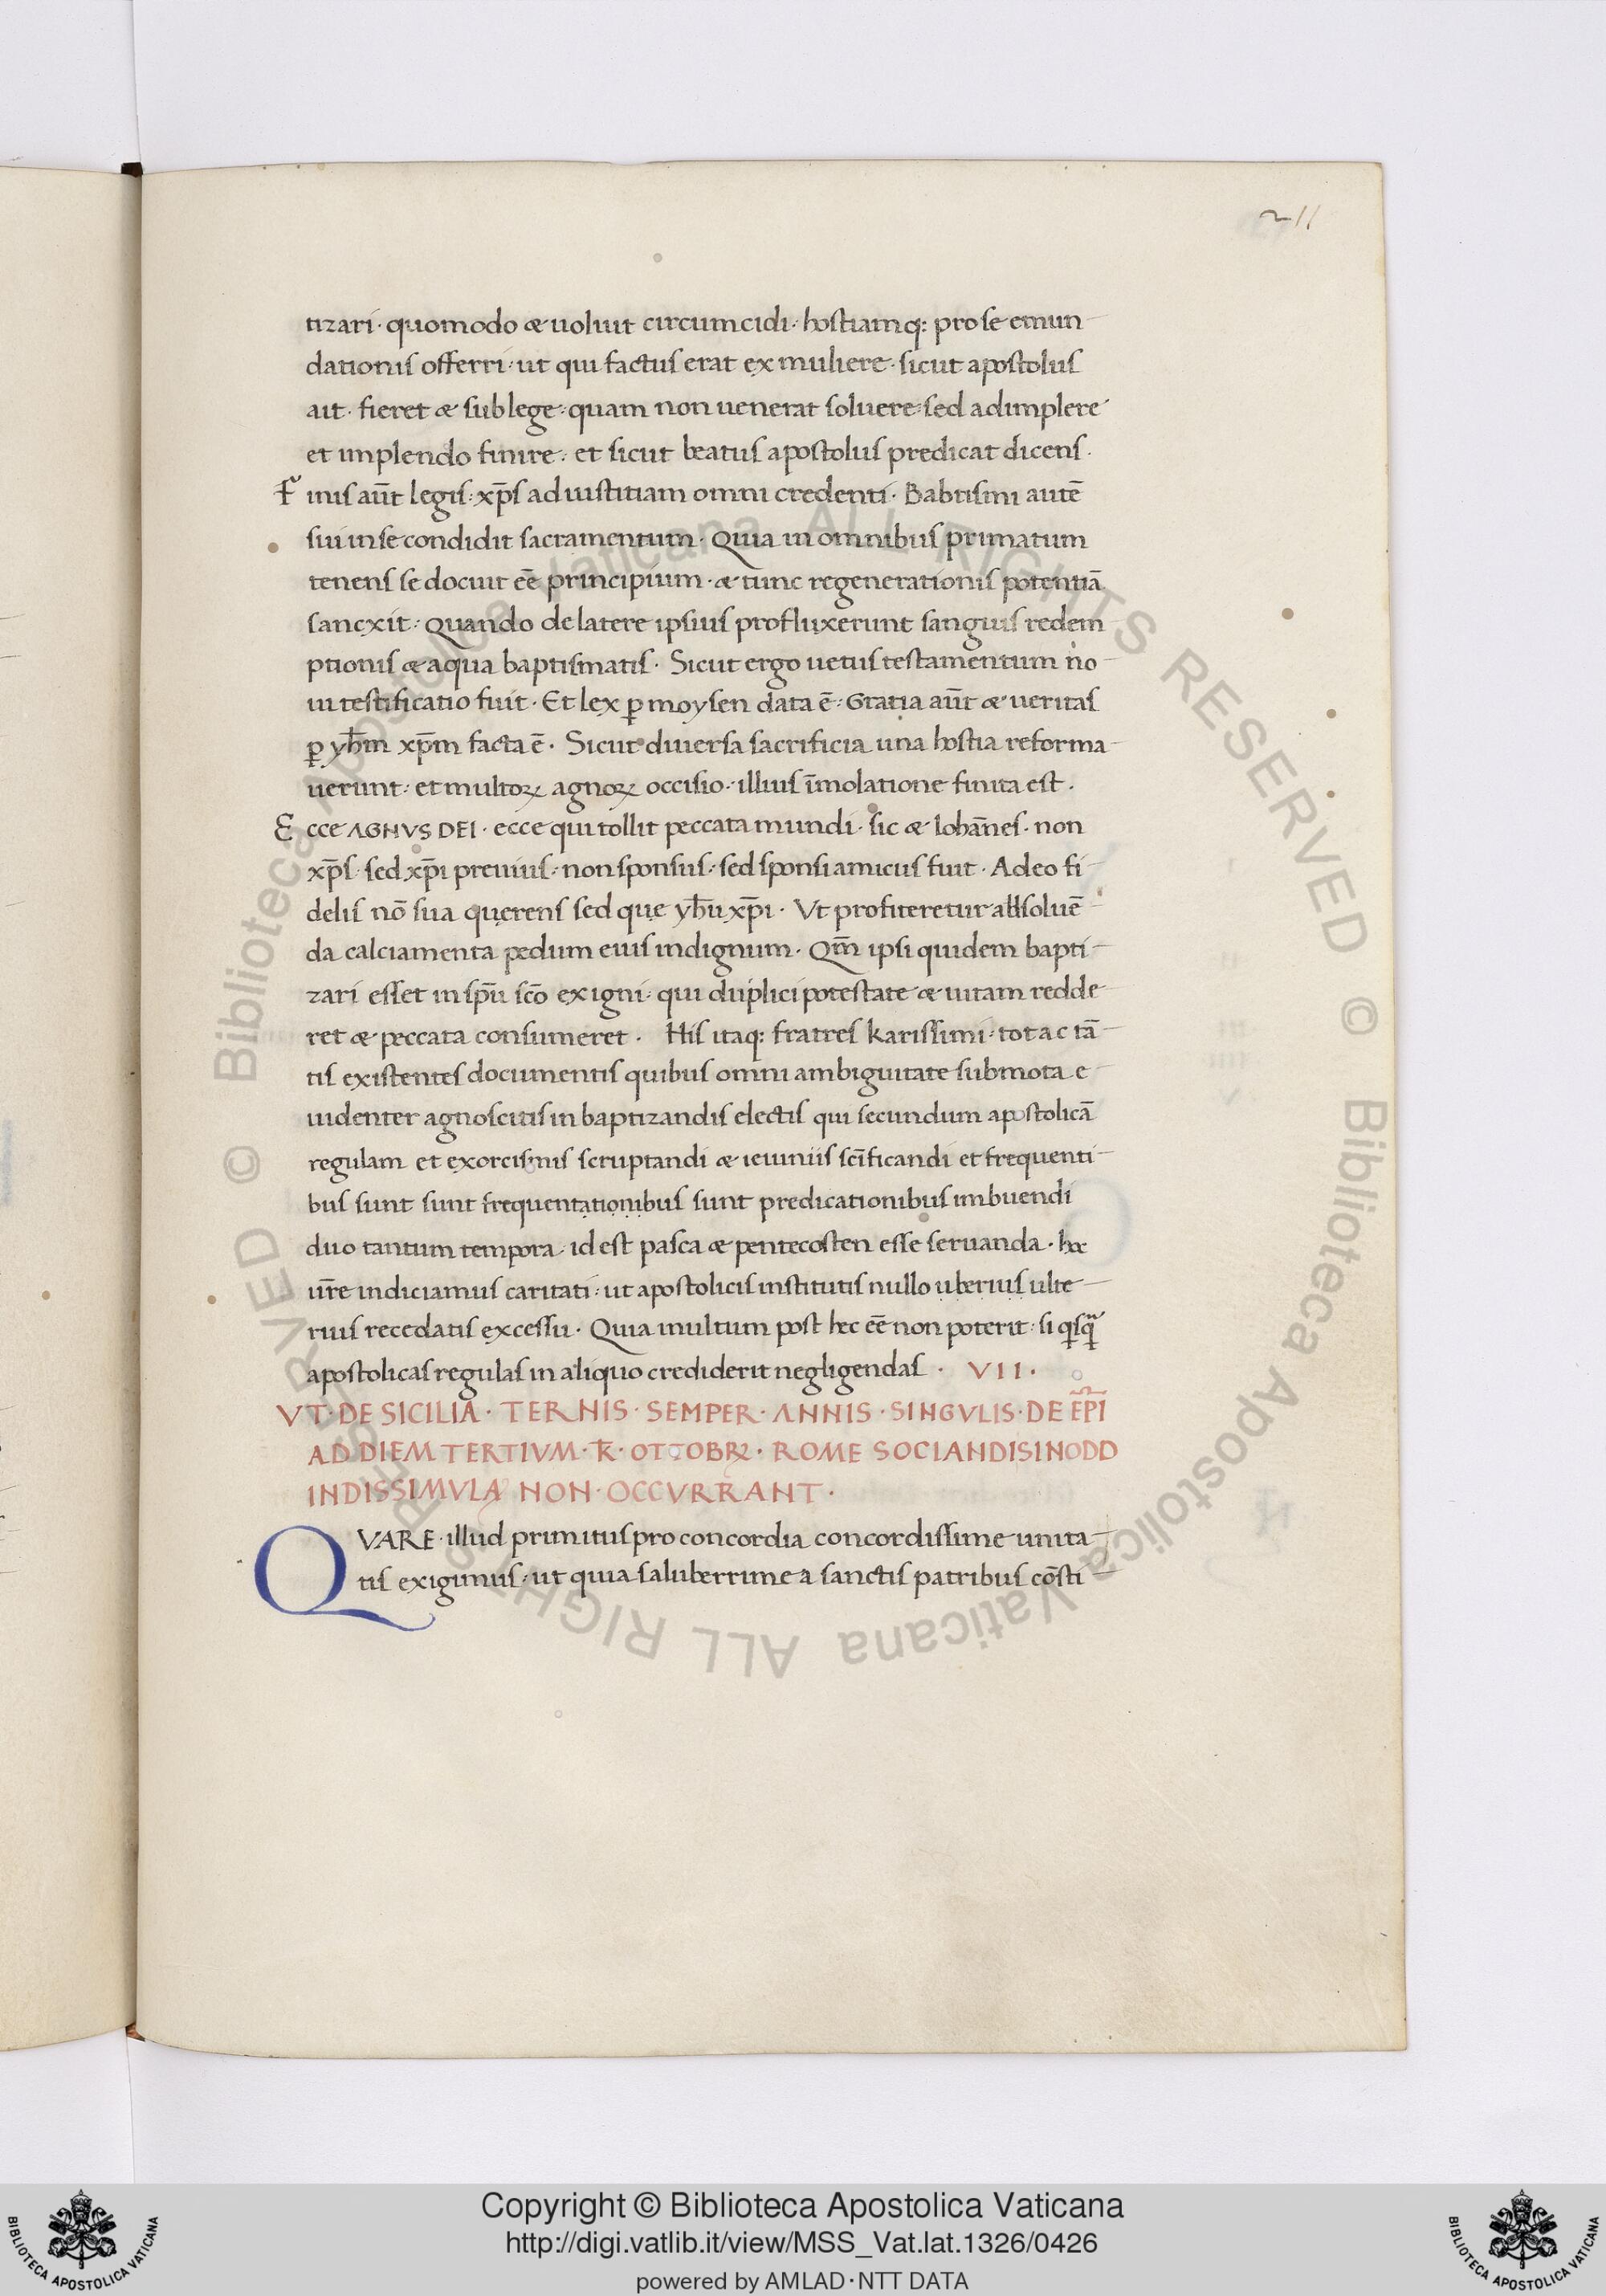 211
tizari · quomodo & uoluit circumcidi · hostiamq: pro se emun
dationis offerri · ut qui factus erat ex muliere · sicut apostolus
ait · fieret & sub lege · quam non uenerat soluere · sed adimplere
et implendo finire · et sicut beatus apostolus predicat dicens ·
Finis aūt legis · xp̄s ad iustitiam omni credenti · Babtismi autē
sui in se condidit sacramentum · Quia in omnibus primatum
tenens se docuit eē principium · & tunc regenerationis potentiā
sancxit · Quando de latere ipsius profluxerunt sanguis redem
ptionis & aqua baptismatis · Sicut ergo uetus testamentum no
ui testificatio fuit · Et lex ꝑ moysen data ē · Gratia aūt & ueritas
ꝑ yh̄m xp̄m facta ē · Sicut diuersa sacrificia una hostia reforma
uerunt · et multoꝝ agnoꝝ occisio · illius īmolatione finita est ·
Ecce AGNVS DEI · ecce qui tollit peccata mundi · sic & Iohān̄es · non
xp̄s · sed xp̄i preuius · non sponsus · sed sponsi amicus fuit · Adeo fi
delis nō sua querens sed que yh̄u xp̄i · Vt profiteretur absoluē
da calciamenta pedum eius indignum · Qm̄ ipsi quidem bapti
zari esset in sp̄u sc̄o ex igni · qui duplici potestate & uitam redde
ret & peccata consumeret · His itaq: fratres karissimi · tot ac tā
tis existentes documentis quibus omni ambiguitate submota e
uidenter agnoscitis in baptizandis electis qui secundum apostolicā
regulam et exorcismis scruptandi & ieiuniis sc̄ificandi et frequenti
bus sunt sunt frequentationibus sunt predicationibus imbuendi
duo tantum tempora · id est pasca & pentecosten esse seruanda · hoc
ur̄e indiciamus caritati · ut apostolicis institutis nullo uberius ulte
rius recedatis excessu · Quia inultum post hec eē non poterit · si qsq̄
apostolicas regulas in aliquo crediderit negligendas · VII ·
VT · DE SICILIA · TERNIS · SEMPER · ANNIS · SINGVLIS · DE EP̄I
AD DIEM TERTIVM · K̄ · OTTOBꝝ · ROME SOCIANDI SINODO
INDISSIMVLA NON · OCCVRRANT ·
QVARE · illud primitus pro concordia concordissime unita
tis exigimus · ut quia saluberrime a sanctis patribus cōsti
© Biblioteca Apostolica Vaticana ALL RIGHTS RESERVED © Biblioteca Apostolica Vaticana ALL RIGHTS RESERVED
BIBLIOTECA APOSTOLICA VATICANA
Copyright © Biblioteca Apostolica Vaticana
http://digi.vatlib.it/view/MSS_Vat.lat.1326/0426
powered by AMLAD·NTT DATA
BIBLIOTECA APOSTOLICA VATICANA